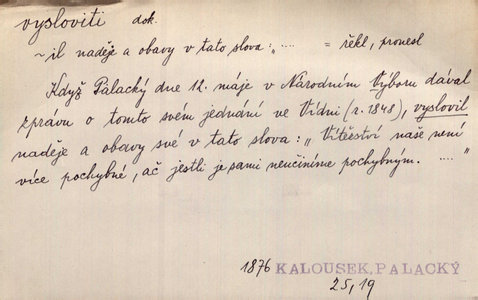 vysloviti dok.
~il naděje a obavy v tato slova: „.... = řekl, pronesl
Když Palacký dne 12. máje v Národním Výboru dával
zprávu o tomto svém jednání ve Vídni (r. 1848), vyslovil
naděje a obavy své v tato slova: „Vítězství naše není
více pochybné, ač jestli je sami neučiníme pochybným. ...."
1876 KALOUSEK, PALACKÝ
25, 19